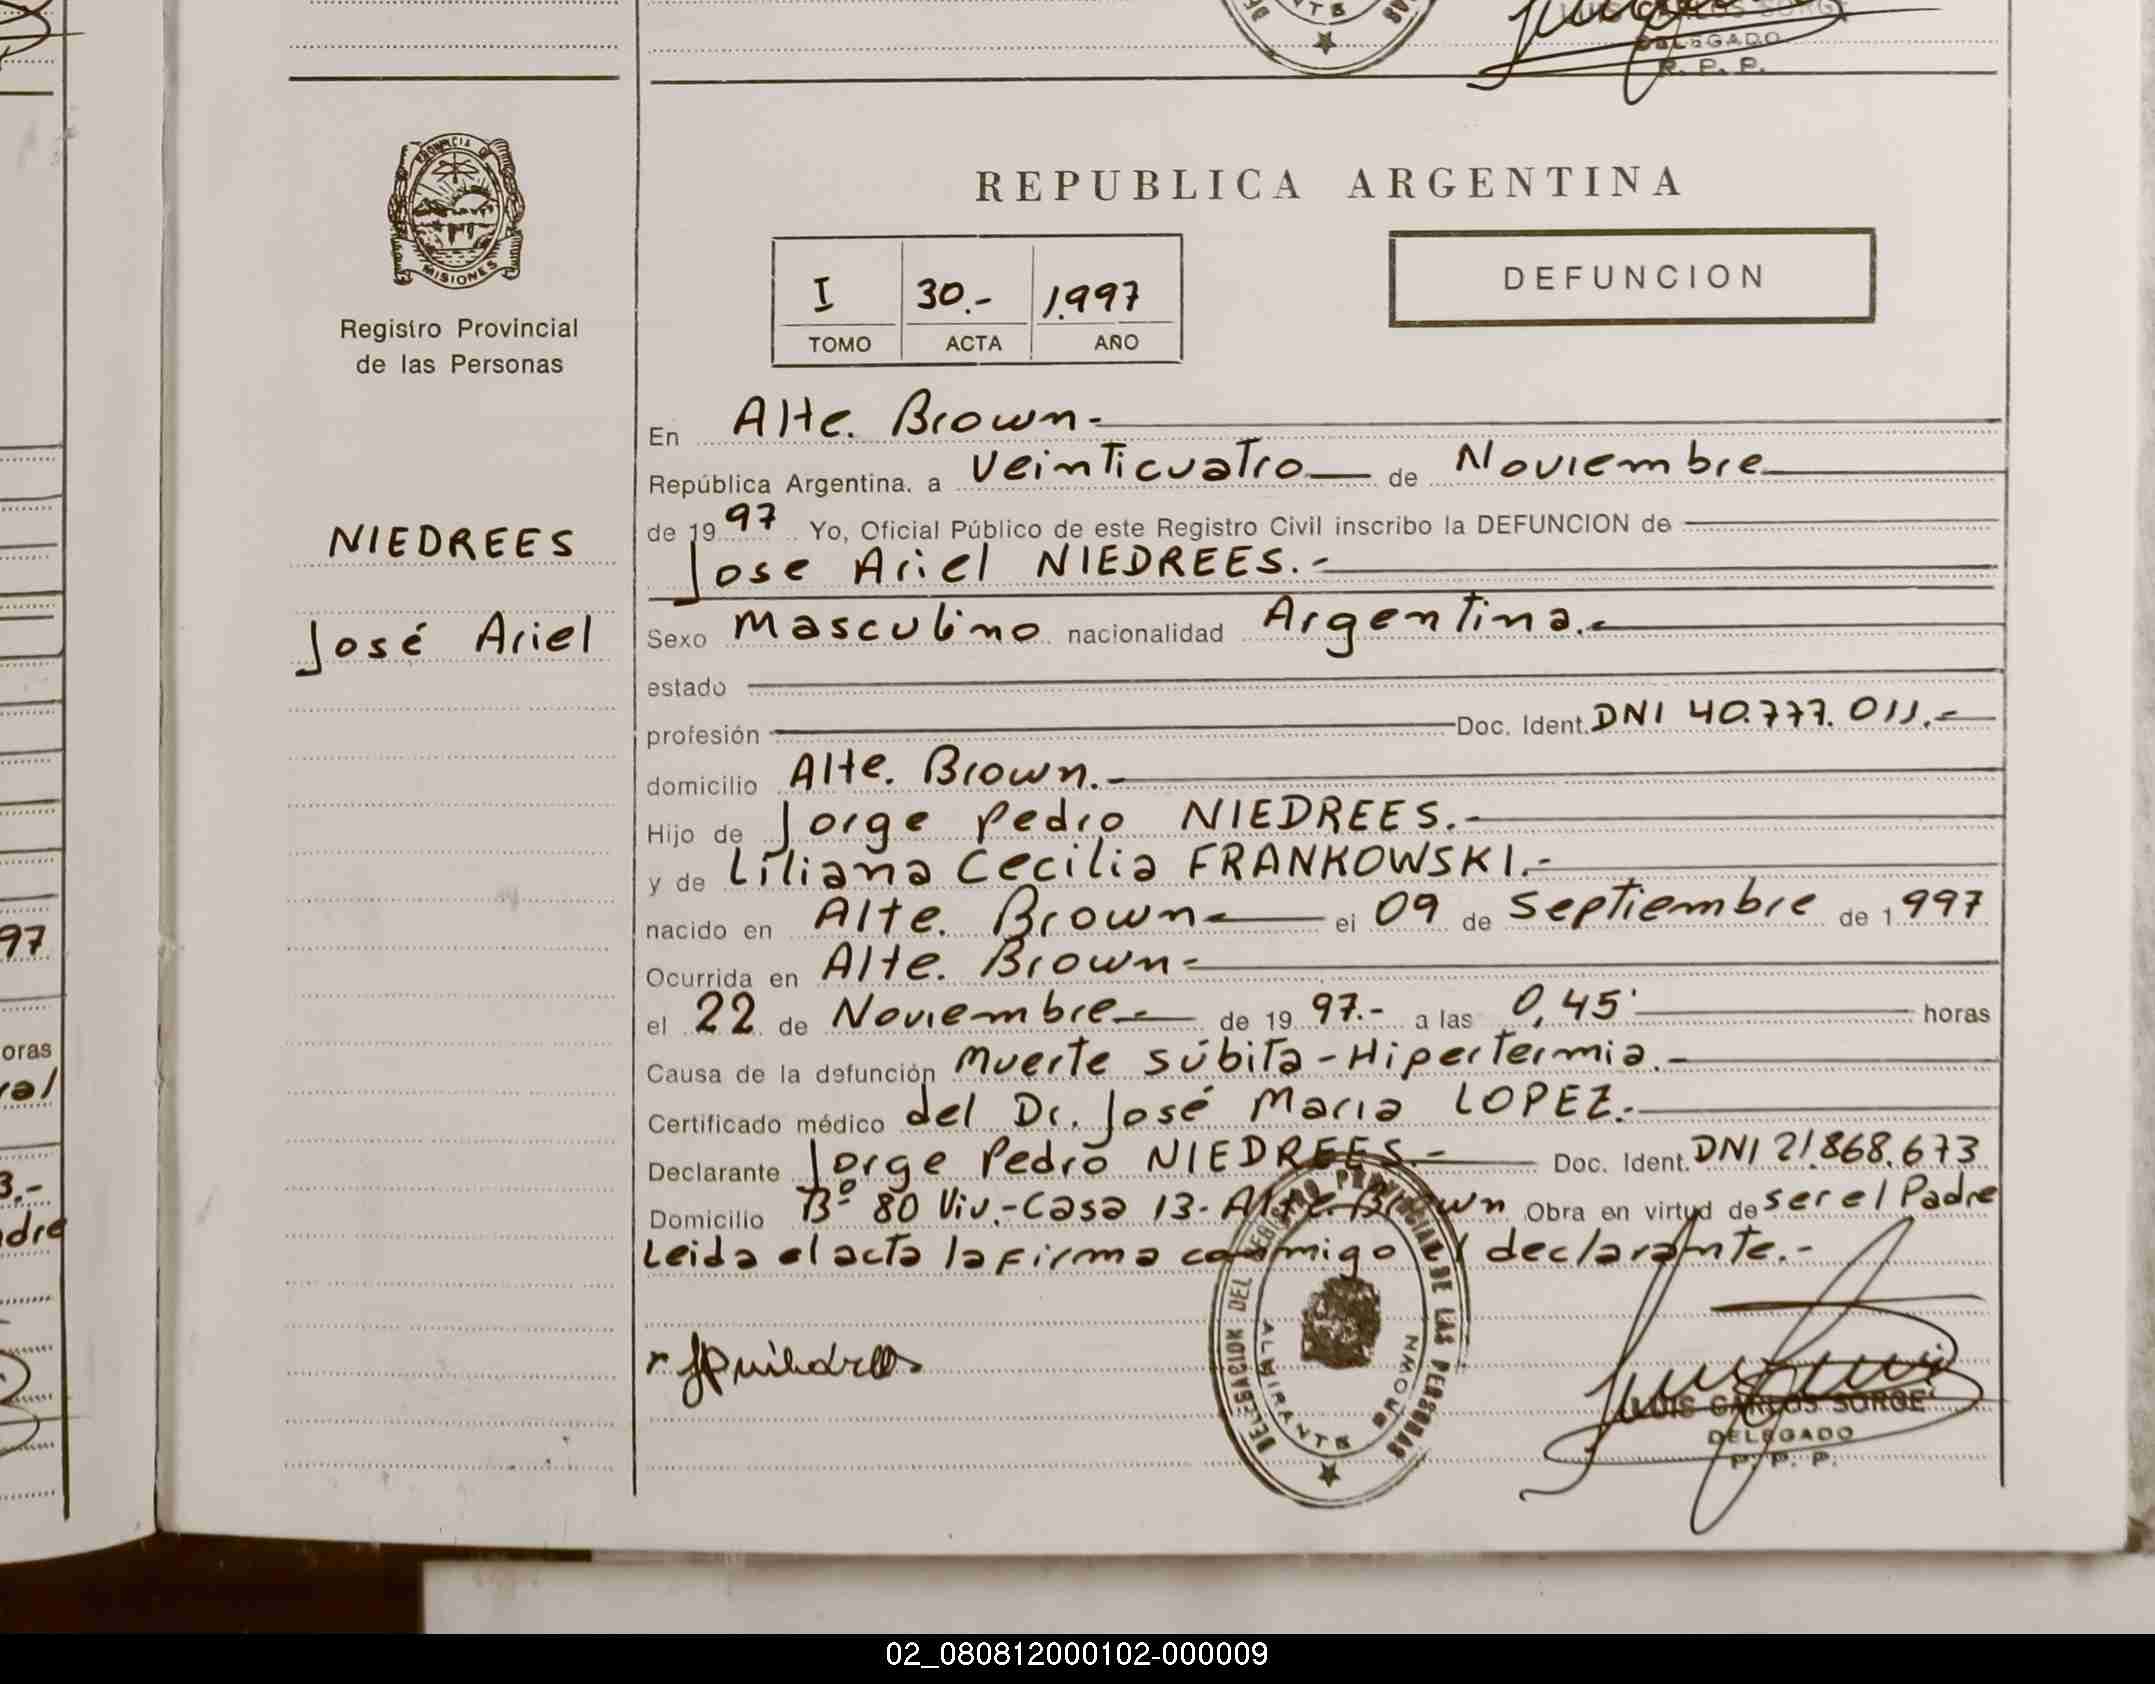 LUIS CARLOS SORGE
DELEGADO
R. P. P.
PROVINCIA DE
MISIONES
Registro Provincial
de las Personas
NIEDREES
José Ariel
REPUBLICA ARGENTINA
I 30.- 1.997
TOMO ACTA AÑO
DEFUNCION
En Alte. Brown-
República Argentina, a Veinticuatro de Noviembre
de 1997 Yo, Oficial Público de este Registro Civil inscribo la DEFUNCION de
Jose Ariel NIEDREES.-
Sexo Masculino nacionalidad Argentina.-
estado
profesión Doc. Ident. DNI 40.777.011.-
domicilio Alte. Brown.-
Hijo de Jorge Pedro NIEDREES.-
y de Liliana Cecilia FRANKOWSKI.-
nacido en Alte. Brown- el 09 de Septiembre de 1997
Ocurrida en Alte. Brown-
el 22 de Noviembre- de 1997.- a las 0,45' horas
Causa de la defunción Muerte súbita-Hipertermia.-
Certificado médico del Dr. José Maria LOPEZ.-
Declarante Jorge Pedro NIEDREES.- Doc. Ident. DNI 21.868.673
Domicilio Bº 80 Viv.-Casa 13-Alte. Brown Obra en virtud de ser el Padre
Leida el acta la firma conmigo el declarante.-
DELEGACION DEL REGISTRO PROVINCIAL DE LAS PERSONAS
ALMIRANTE BROWN
LUIS CARLOS SORGE
DELEGADO
R. P. P.
97
oras
ral
3.-
adre
02_080812000102-000009